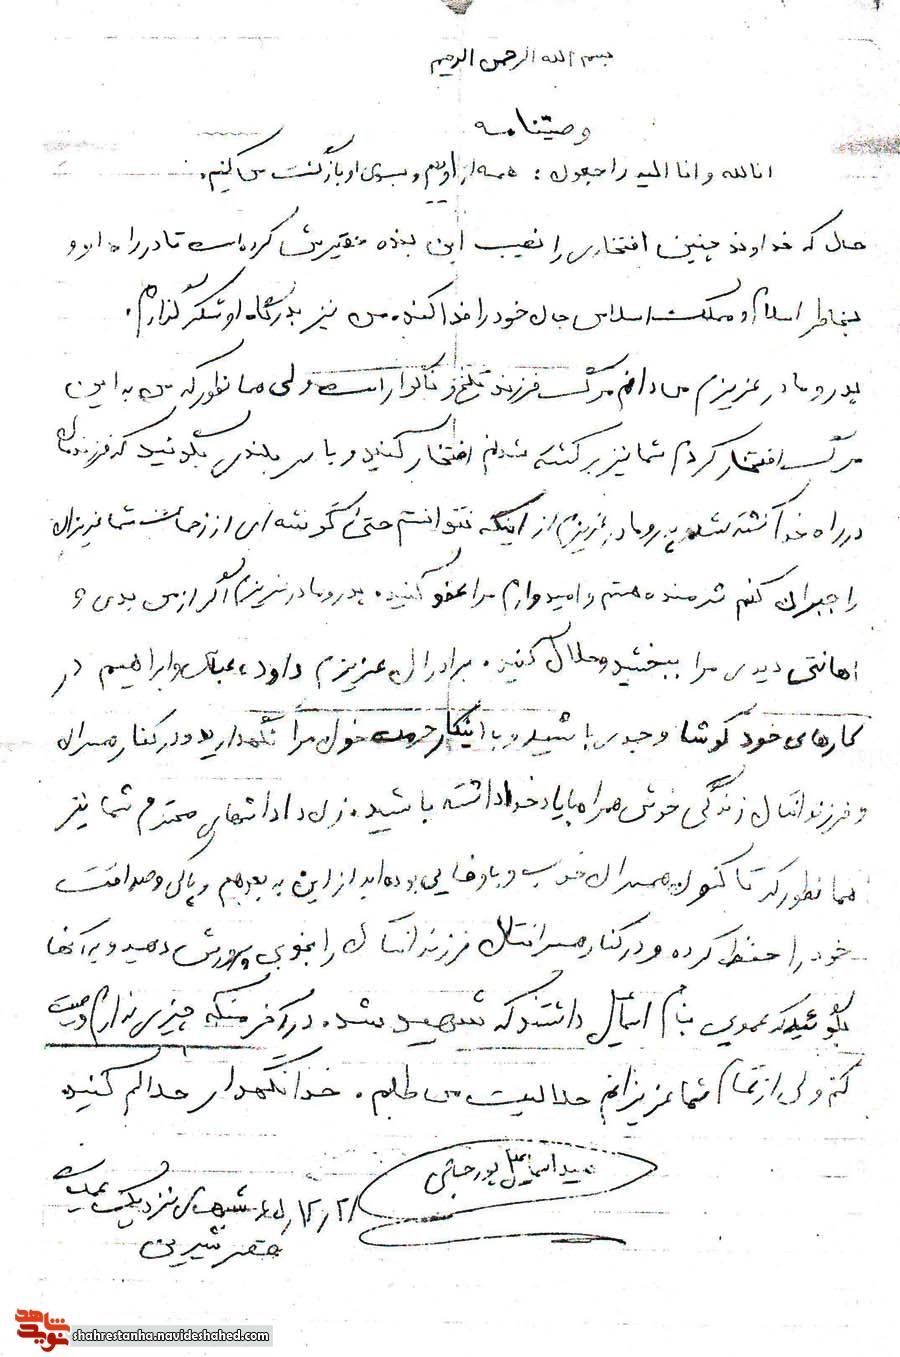 بسم الله الرحمن الرحیم
وصیتنامه
انالله و انا الیه راجعون : همه از اوییم و بسوی او بازگشت می کنیم.
حال که خداوند چنین افتخاری را نصیب این بنده حقیرش کرده است تا در راه او و
بخاطر اسلام و مملکت اسلامی جان خود را فدا کند. من نیز بدرگاه او شکر گذارم.
پدر و مادر عزیزم می دانم مرگ فرزند تلخ و ناگوار است ولی همانطور که من به این
مرگ افتخار کردم شما نیز بر کشته شدنم افتخار کنید و با سر بلندی بگوئید که فرزندمان
در راه خدا کشته شد. پدر و مادر عزیزم از اینکه نتوانستم حتی گوشه ای از زحمات شما عزیزان
را جبران کنم شرمنده هستم و امیدوارم مرا عفو کنید. پدر و مادر عزیزم اگر از من بدی و
اهانتی دیدی مرا ببخشید و حلال کنید. برادران عزیزم داود، عباس و ابراهیم در
کارهای خود کوشا و جدی باشید و با اینکار حرمت خون مرا نگهدارید و در کنار همسران
و فرزندانتان زندگی خوش همراه با یاد خدا داشته باشید. زن داداشهای محترم شما نیز
همانطور که تا کنون همسران خوب و باوفایی بوده اید از این به بعد هم پاکی و صداقت
خود را حفظ کرده و در کنار همسرانتان فرزندانتان را بخوبی پرورش دهید و به آنها
بگوئید که عموی بنام اسماعیل داشتند که شهید شد. در آخر منکه چیزی ندارم وصیت
کنم ولی از تمام شما عزیزانم حلالیت می طلبم. خدانگهدار حلالم کنید
سید اسماعیل پور
۱۲٫۲۱ شبهای نزدیک عملیات
قصر شیرین
نوید شاهد
shahrestanha.navideshahed.com